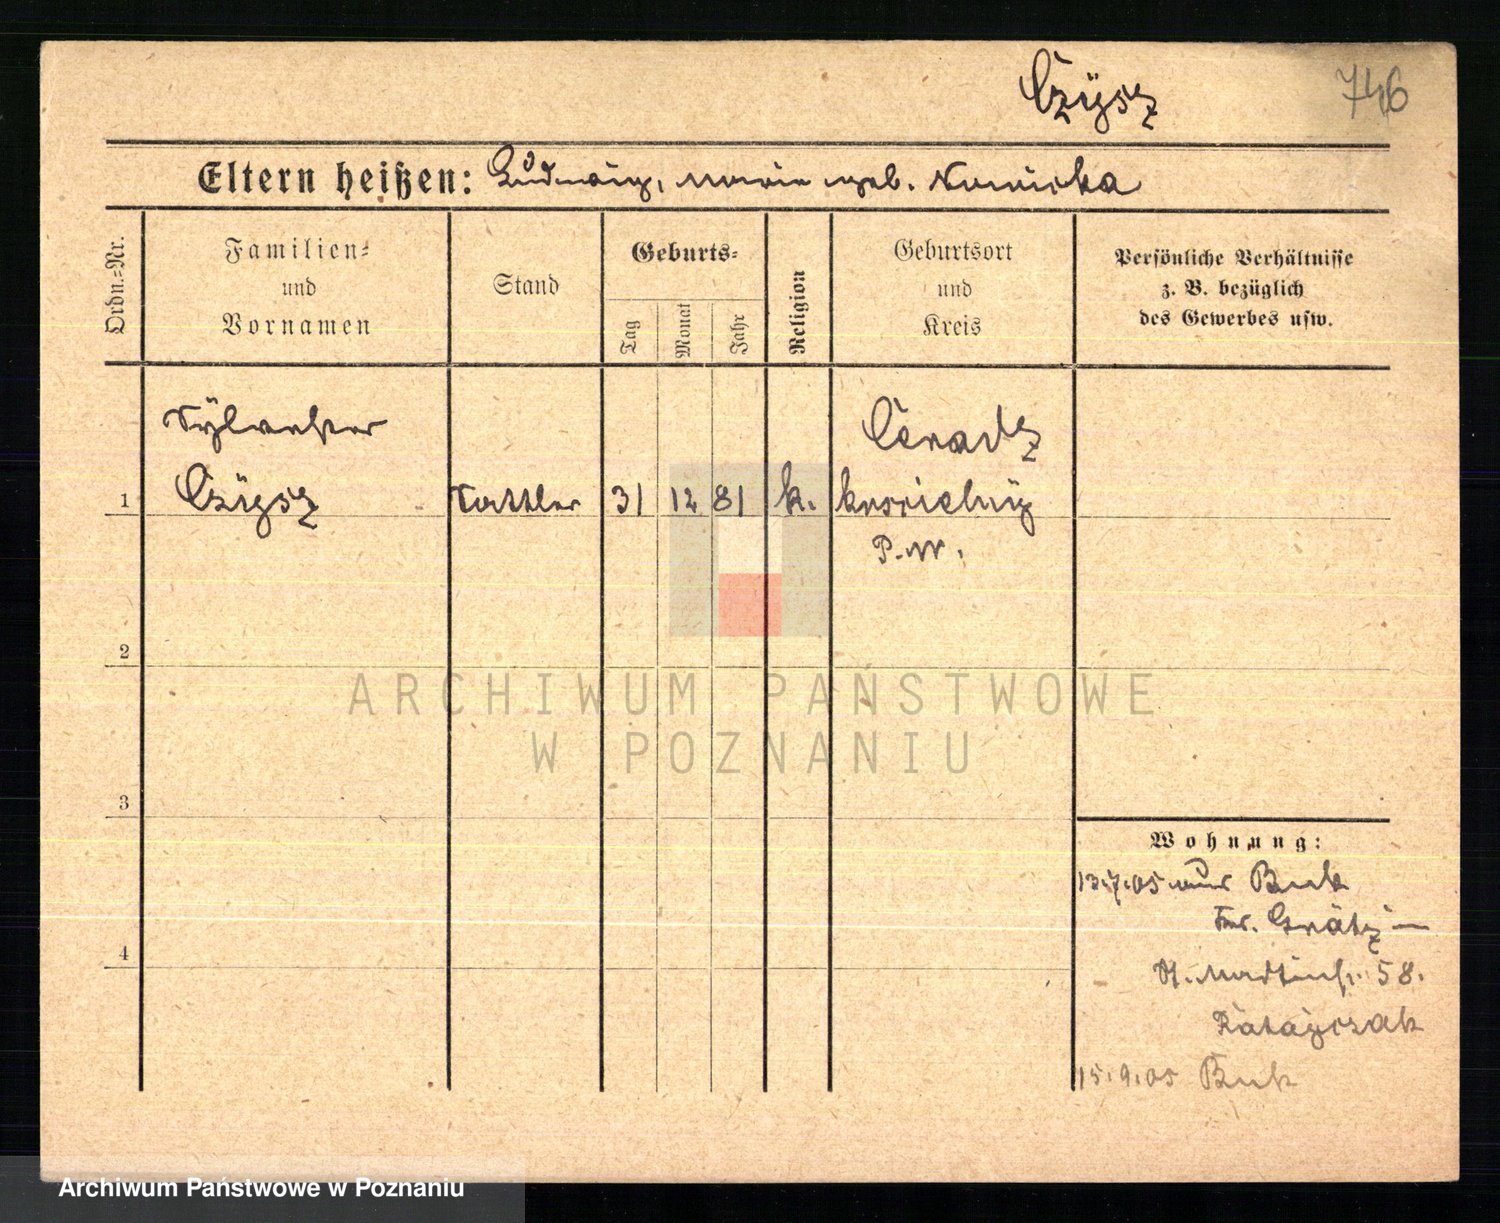 Czÿsz
746
Eltern heißen: Ludwig, Marie geb. Nowicka
Ordn.-Nr.
Familien-
und
Vornamen
Stand
Geburts-
Tag
Monat
Jahr
Religion
Geburtsort
und
Kreis
Persönliche Verhältnisse
z. B. bezüglich
des Gewerbes usw.
Sÿlvester
Czÿsz
1
Sattler
31
12
81
k.
Ceradz
P.W.
2
ARCHIWUM PAŃSTWOWE
W POZNANIU
3
Wohnung:
13.7.05 aus Buk
Kr. Grätz
St. Martinstr. 58.
Ratajczak
4
15.9.05 Buk
Archiwum Państwowe w Poznaniu